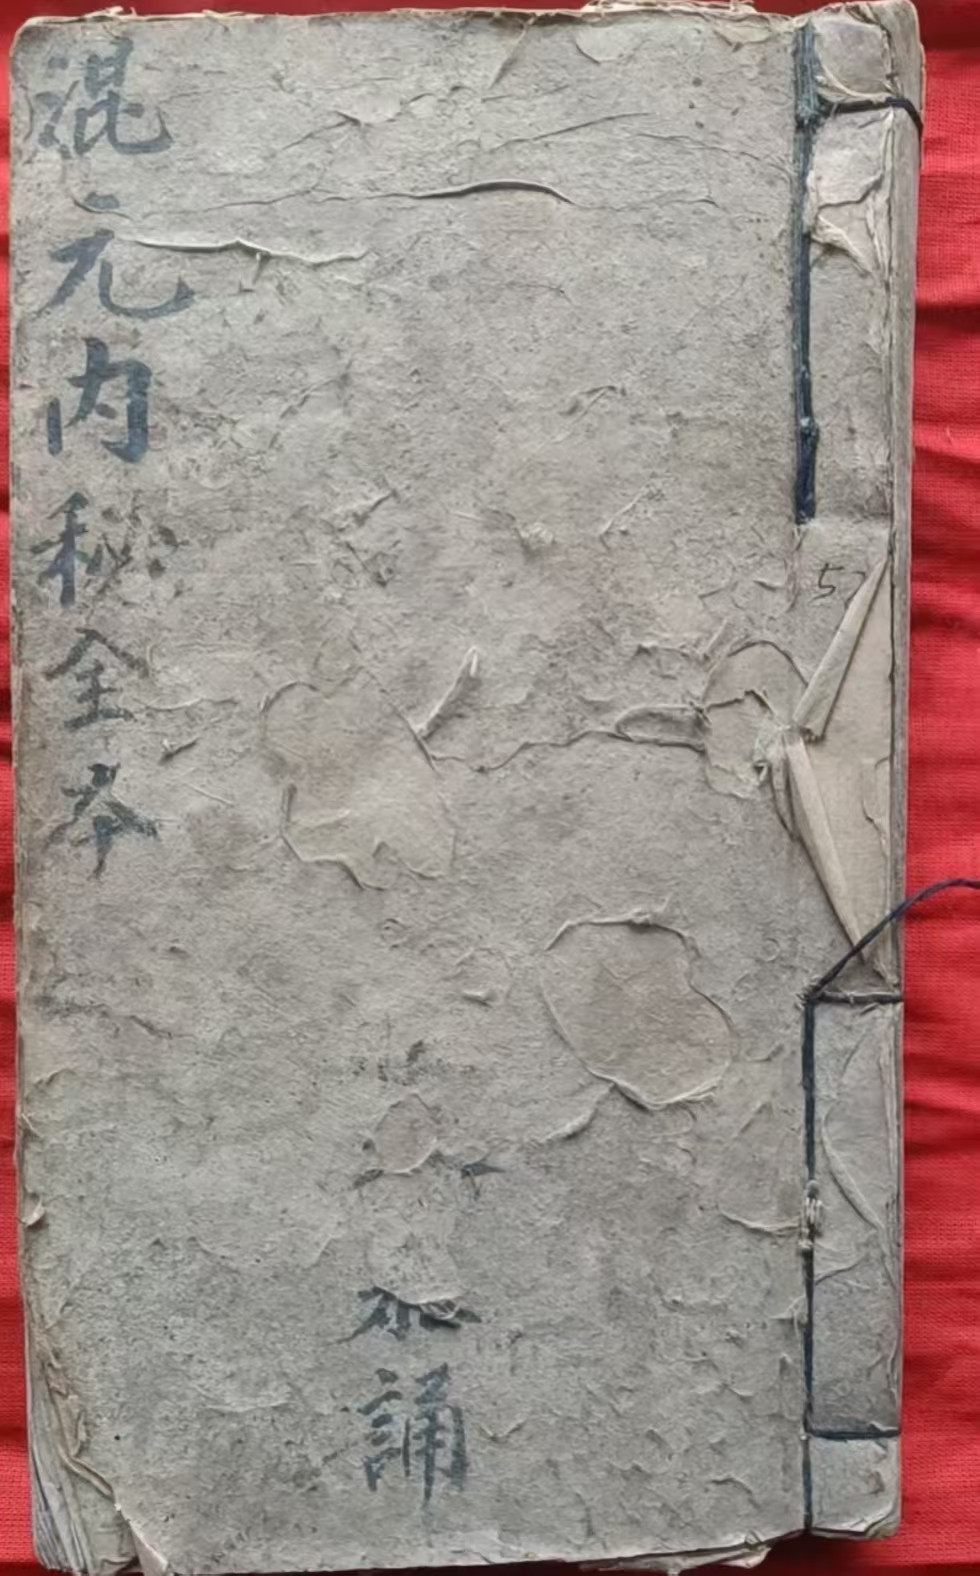 混元内秘全本
誦
5